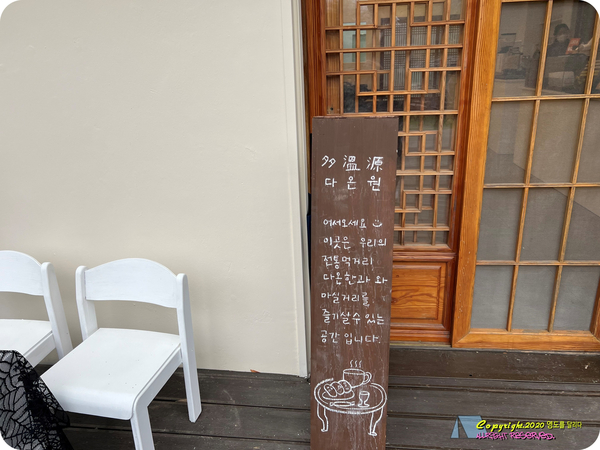 多溫源
다온원
어서오세요
이곳은 우리의
전통먹거리
다온한과 와
마실거리를
즐기실수 있는
공간 입니다.
Copyright.2020 영도를 달리다
ALLRIGHT RESERVED.